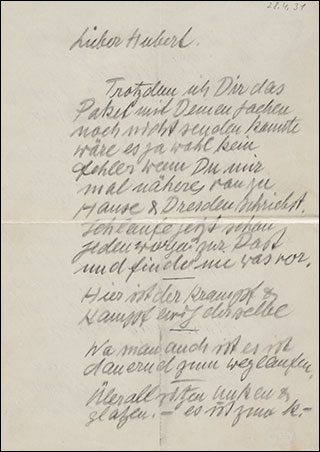 28.4.31
Lieber Hubert.
Trotzdem ich Dir das
Paket mit Deinen Sachen
noch nicht senden konnte
wäre es ja wohl kein
Fehler wenn Du mir
mal näheres von zu
Hause & Dresden schriebst.
Ich laufe jetzt schon
jeden morgen zur Post
und finde nie was vor.
Hier ist der Krampf &
Kampf ewig derselbe
Wo man auch ist es ist
dauernd zum weglaufen.
Überall sitzen Unken &
glotzen. – es ist zum k.–